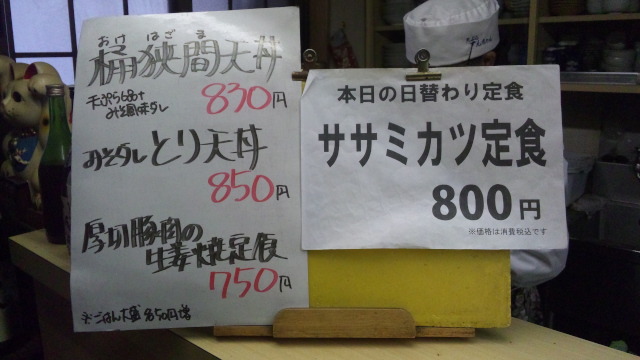 おけ はざま
桶狭間天丼
天ぷら6品+
みそ風味ダレ
830円
みそダレ とり天丼
850円
厚切豚肉の
生姜焼定食
750円
本日の日替わり定食
ササミカツ定食
800円
※価格は消費税込です